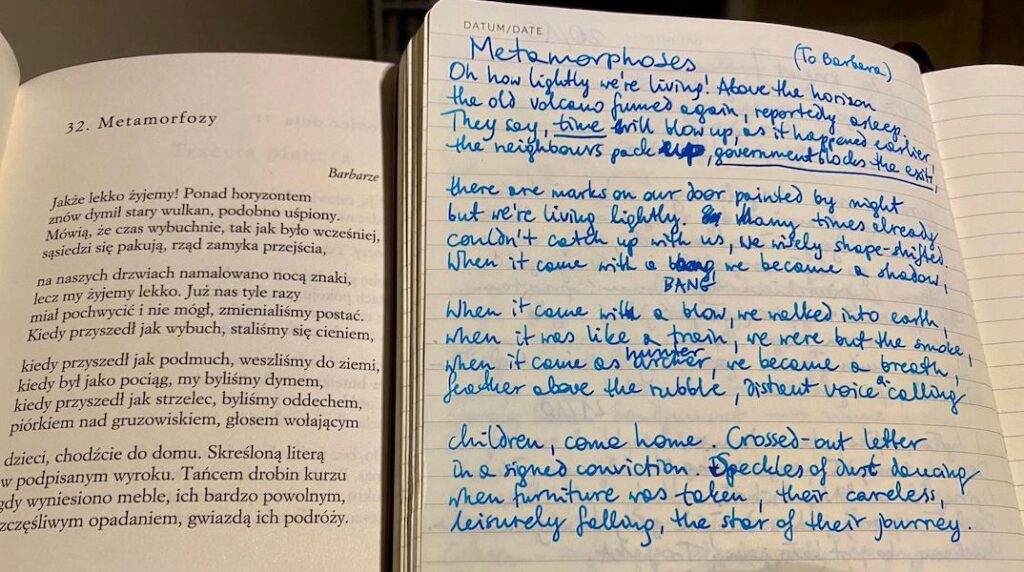 32. Metamorfozy
Barbarze
Jakże lekko żyjemy! Ponad horyzontem
znów dymił stary wulkan, podobno uśpiony.
Mówią, że czas wybuchnie, tak jak było wcześniej,
sąsiedzi się pakują, rząd zamyka przejścia,
na naszych drzwiach namalowano nocą znaki,
lecz my żyjemy lekko. Już nas tyle razy
miał pochwycić i nie mógł, zmienialiśmy postać.
Kiedy przyszedł jak wybuch, staliśmy się cieniem,
kiedy przyszedł jak podmuch, weszliśmy do ziemi,
kiedy był jako pociąg, my byliśmy dymem,
kiedy przyszedł jak strzelec, byliśmy oddechem,
piórkiem nad gruzowiskiem, głosem wołającym
dzieci, chodźcie do domu. Skreśloną literą
w podpisanym wyroku. Tańcem drobin kurzu
gdy wyniesiono meble, ich bardzo powolnym,
zczęśliwym opadaniem, gwiazdą ich podróży.
DATUM/DATE
Metamorphoses (To Barbara)
Oh how lightly we're living! Above the horizon
the old volcano fumed again, reportedly asleep.
They say, time will blow up, as it happened earlier,
the neighbours pack up, government blocks the exits,
there are marks on our door painted by night
but we're living lightly. Many times already
couldn't catch up with us, we wisely shape-shifted.
When it came with a bang, we became a shadow,
BANG
When it came with a blow, we walked into earth,
when it was like a train, we were but the smoke,
hunter
when it came as archer, we became a breath,
feather above the rubble, distant voice a calling
children, come home. Crossed-out letter
in a signed conviction. Speckles of dust dancing
when furniture was taken, their careless,
leisurely falling, the star of their journey.